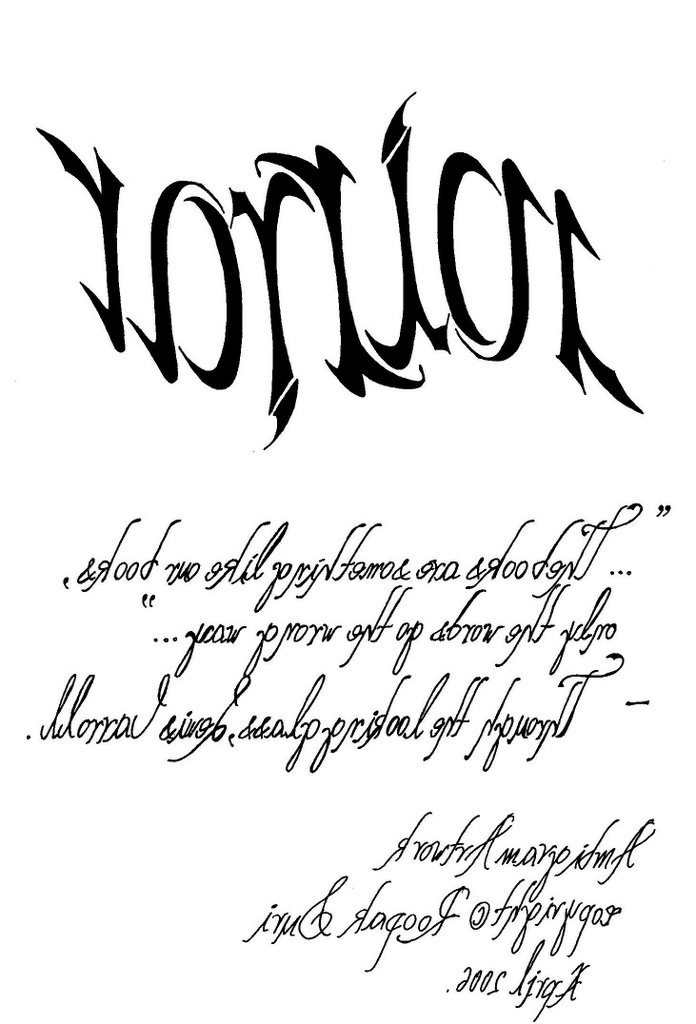 "... The books are something like our books,
only the words go the wrong way ..."
— Through the looking glass, Lewis Carroll.
Ambigram Artwork
copyright © Roopak Suri
April 2006.